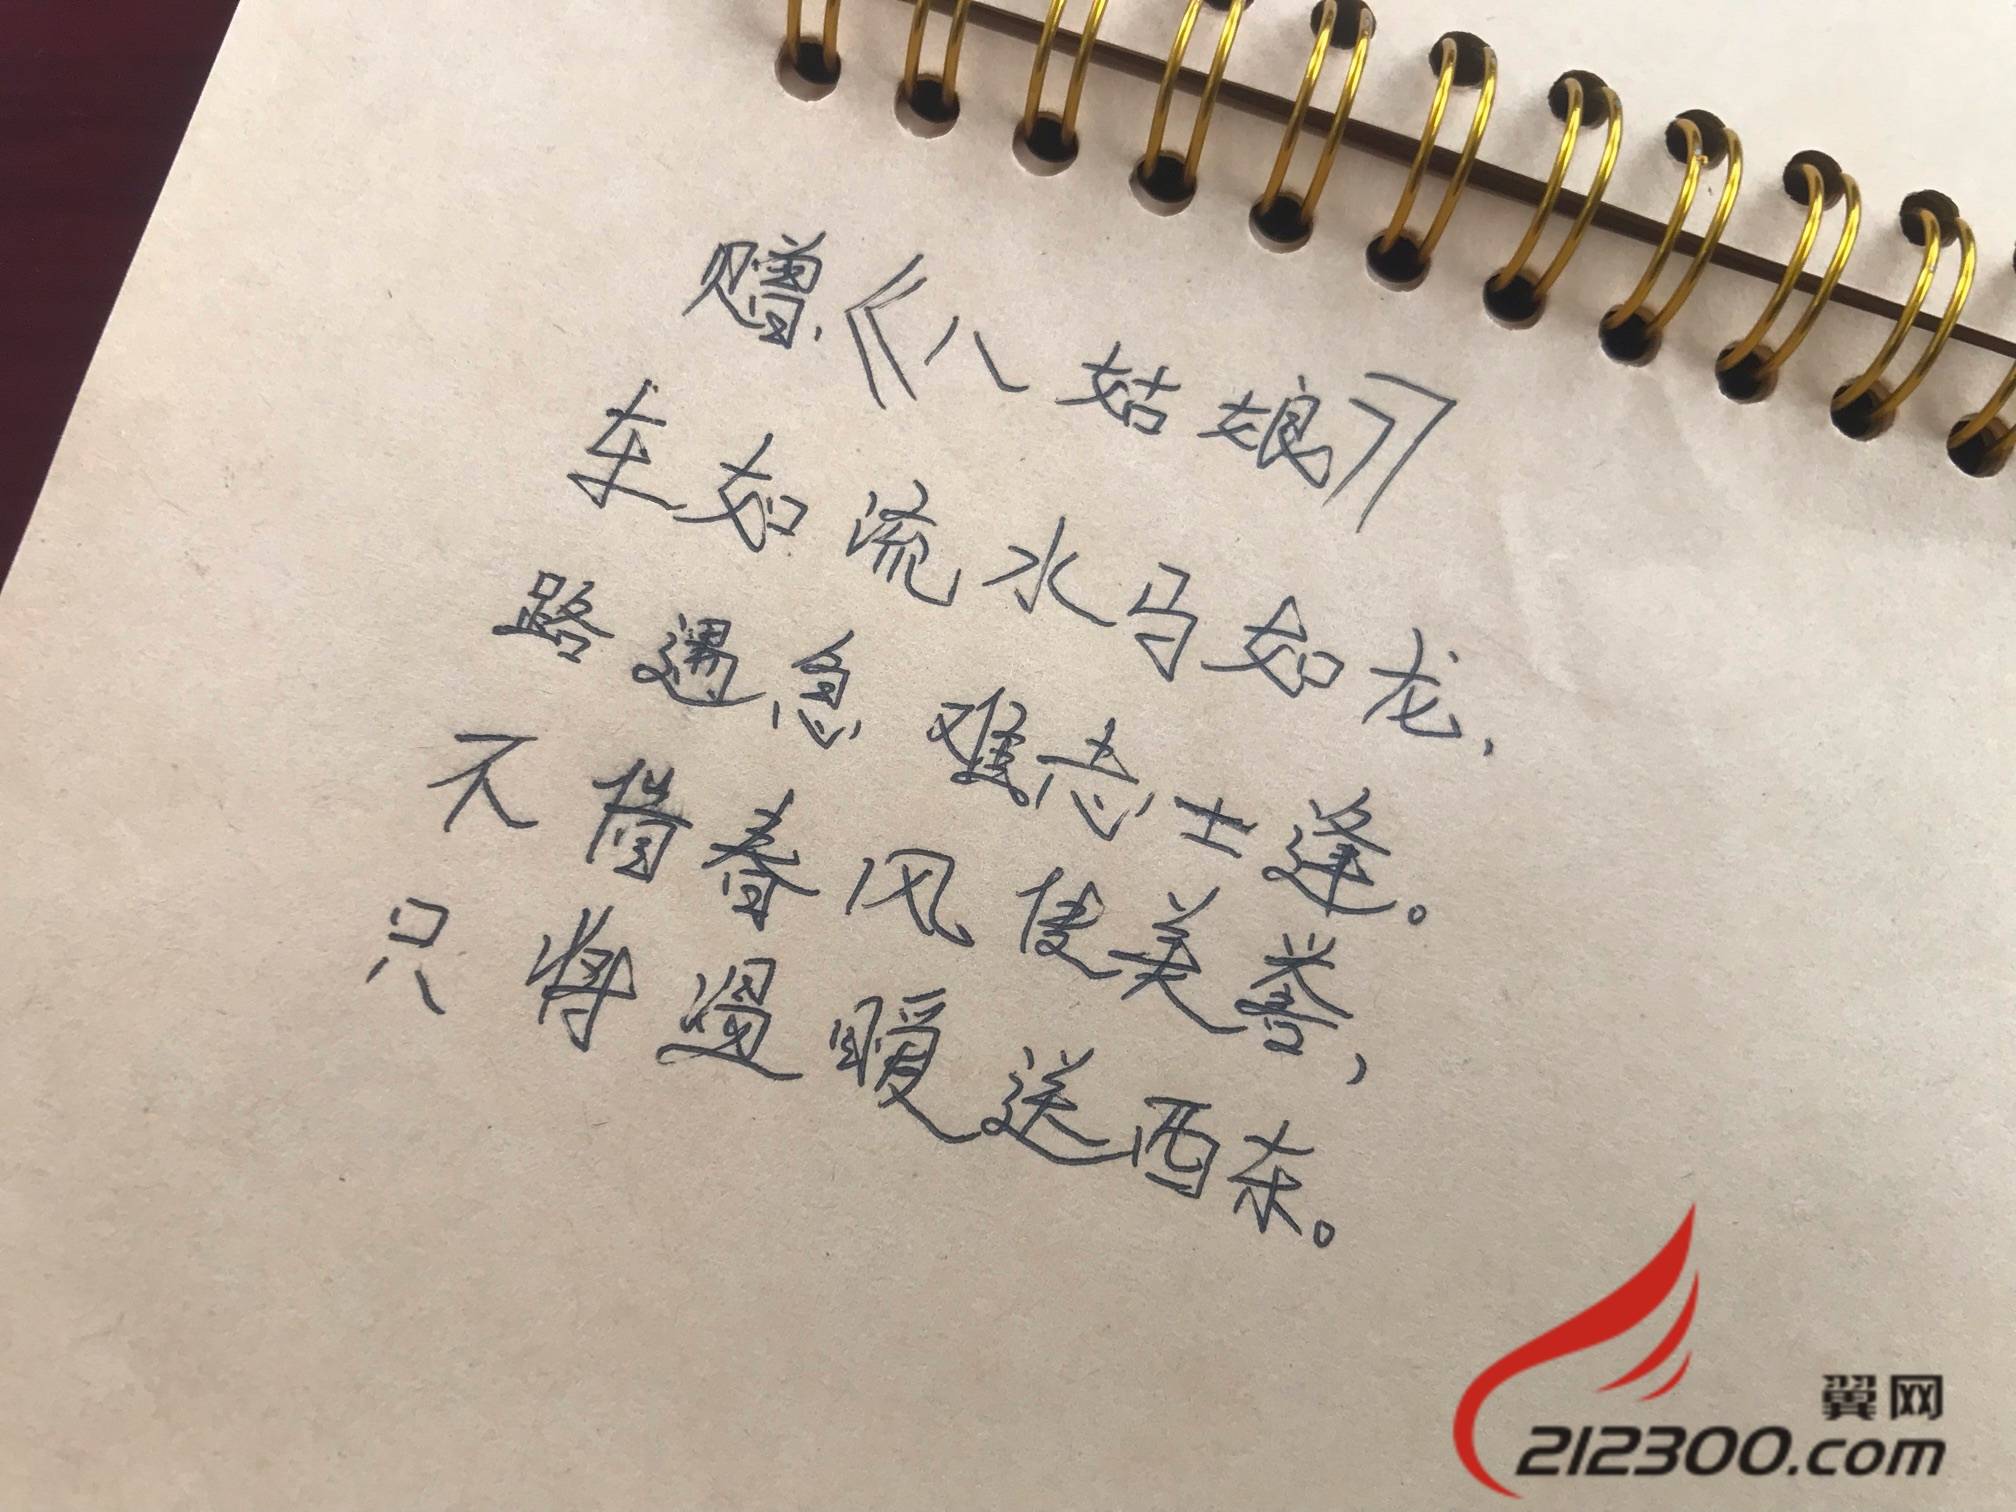 赠《八姑娘》
车如流水马如龙,
路遇急难志士逢。
不借春风使美誉,
只将温暖送西东。
翼网
212300.com